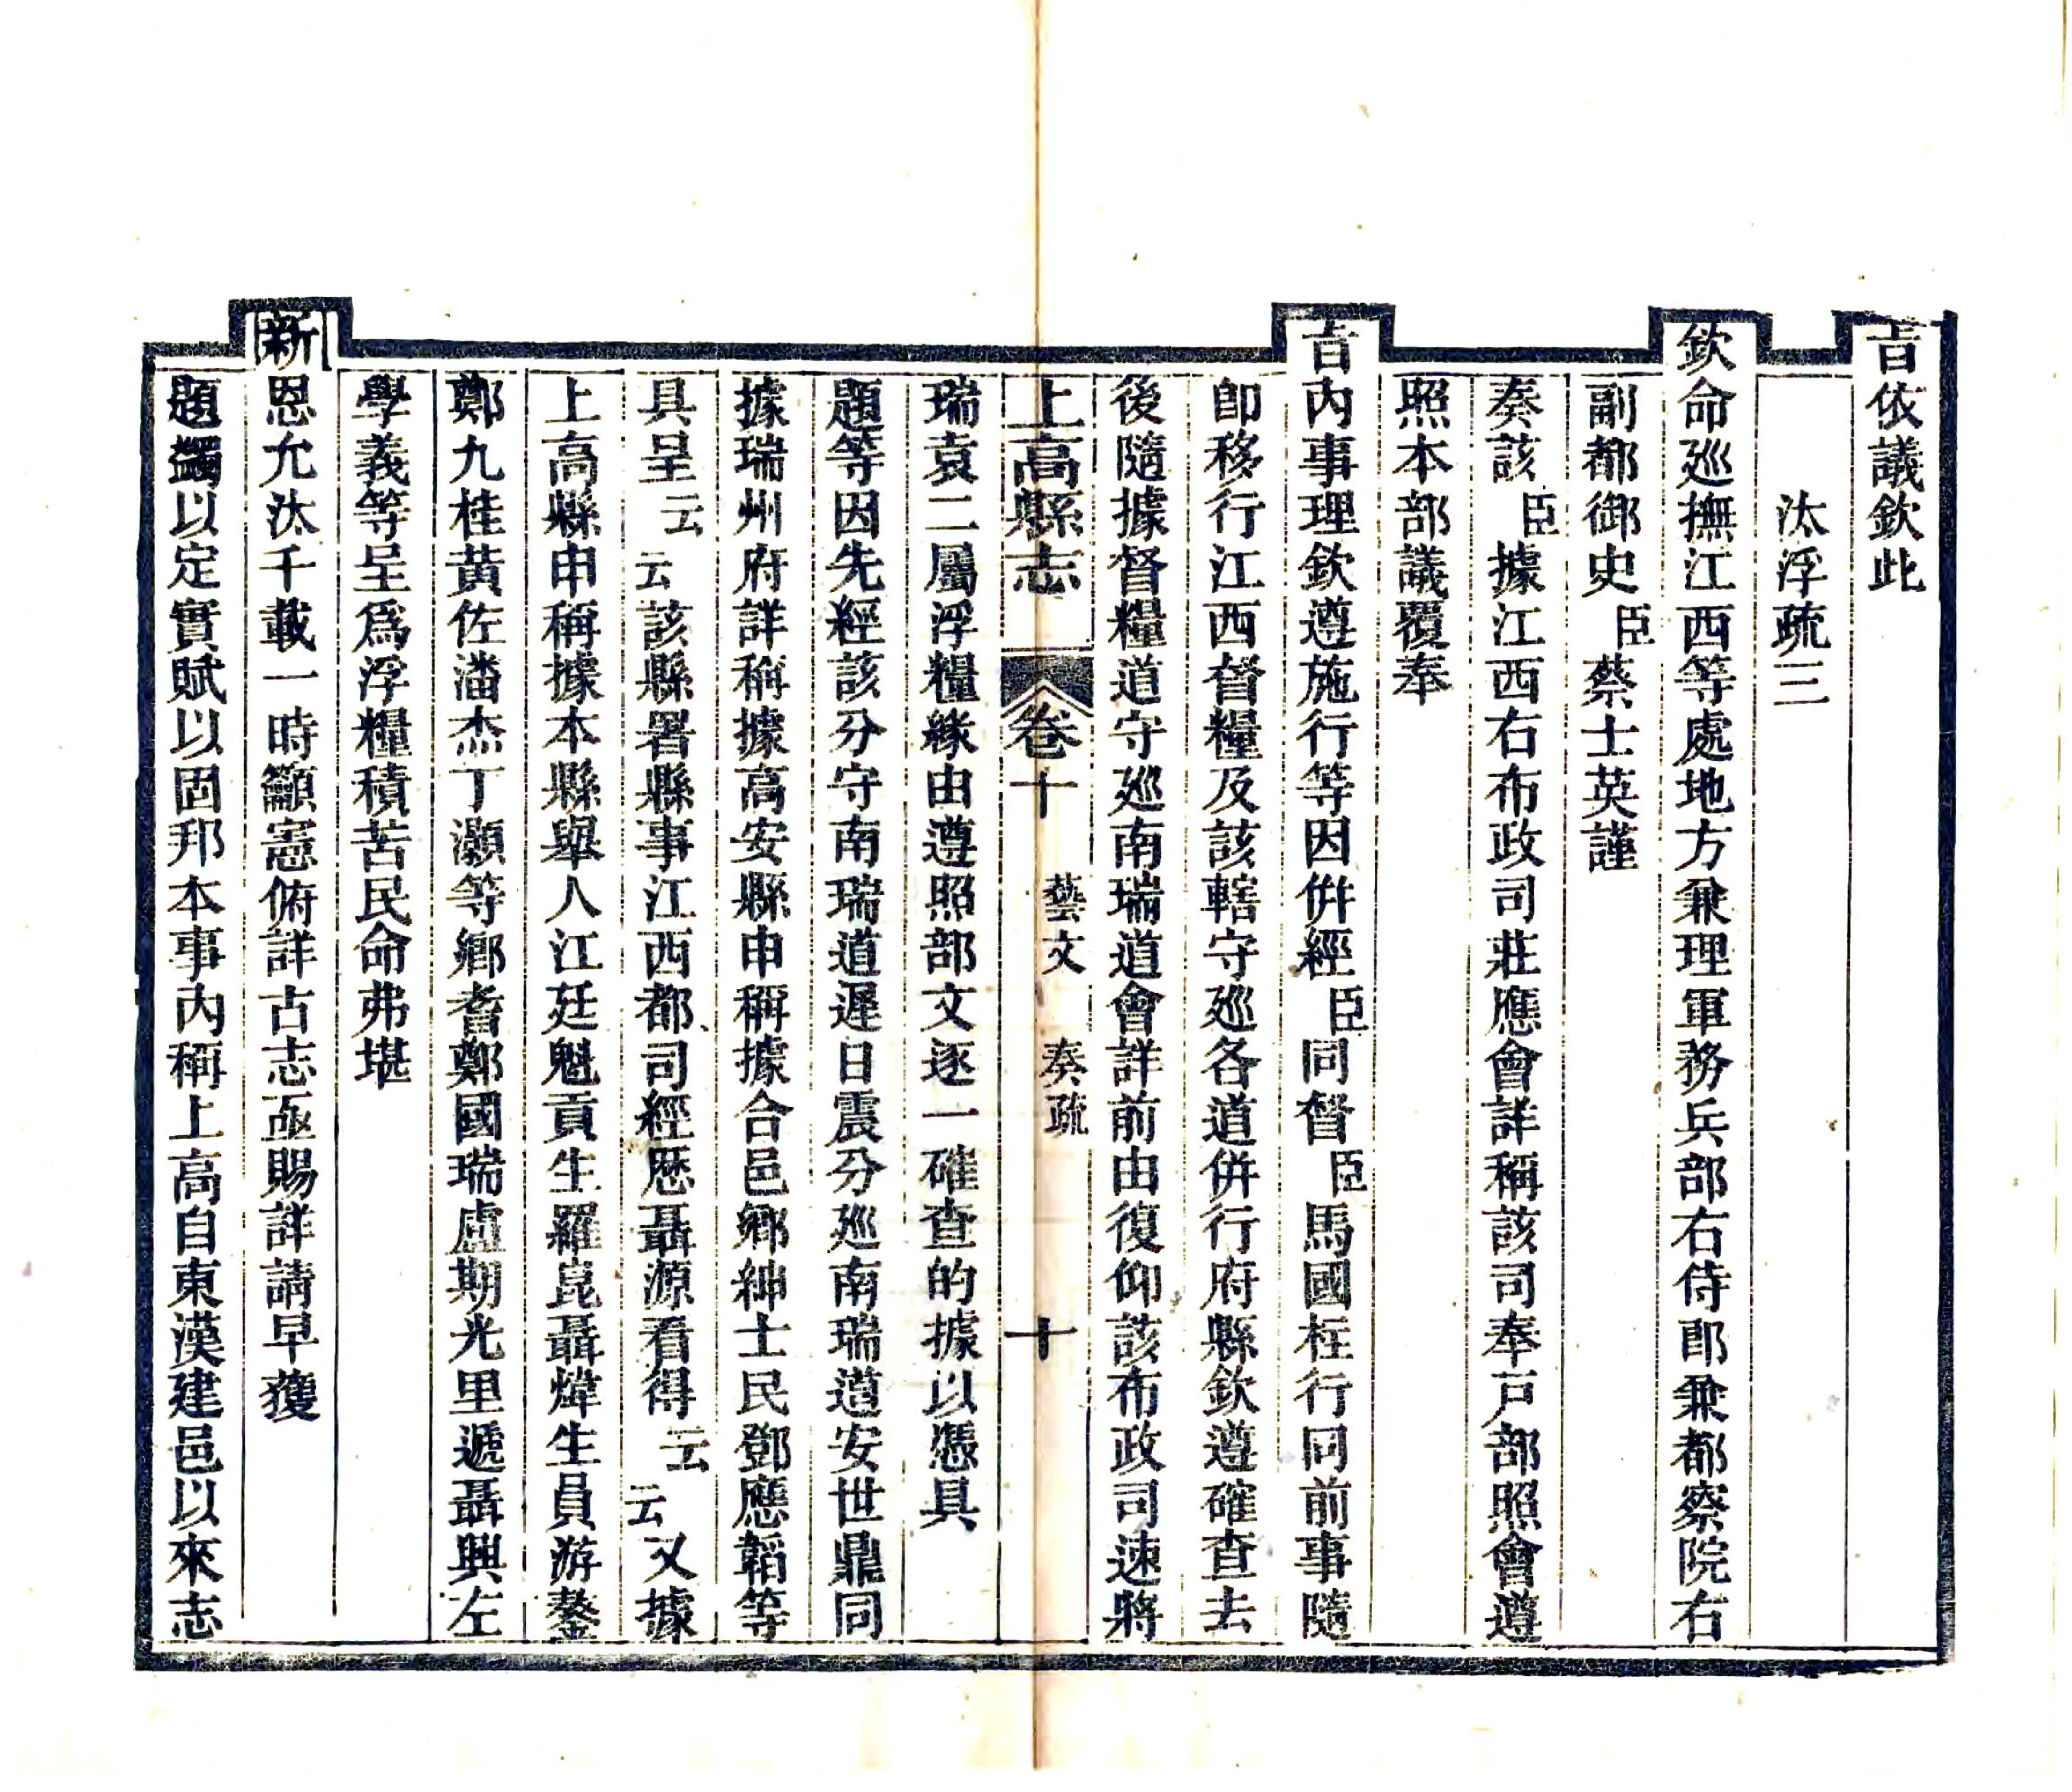 旨依議欽此
汰浮疏三
欽命廵撫江西等處地方兼理軍務兵部右侍郎兼都察院右
副都御史臣蔡士英謹
奏該臣據江西右布政司莊應會詳稱該司奉戸部照會遵
照本部議覆奉
旨內事理欽遵施行等因併經臣同督臣馬國柱行同前事隨
卽移行江西督糧及該轄守廵各道併行府縣欽遵確查去
後隨據督糧道守廵南瑞道會詳前由復仰該布政司速將
上高縣志 卷十 藝文 奏疏 十
瑞袁二屬浮糧緣由遵照部文逐一確查的據以憑具
題等因先經該分守南瑞道遲日震分廵南瑞道安世鼎同
據瑞州府詳稱據高安縣申稱據合邑鄉紳士民鄧應韜等
具呈云云該縣署縣事江西都司經歷聶源看得云云又據
上高縣申稱據本縣舉人江廷魁貢生羅崑聶煒生員游鏊
鄭九桂黃佐潘杰丁灝等鄉耆鄭國瑞盧期光里遞聶興左
學義等呈爲浮糧積苦民命弗堪
新恩允汰千載一時籲憲俯詳古志亟賜詳請早獲
題蠲以定實賦以固邦本事內稱上高自東漢建邑以來志